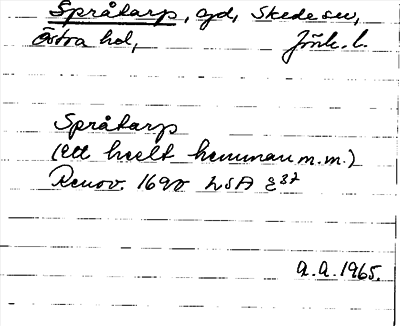 Språtarp, gd, Skede sn,
Östra hd, Jönk. l.
Språtarp
(ett heelt hemman m.m.)
Renov. 1690 LSA E 37
A.A. 1965.